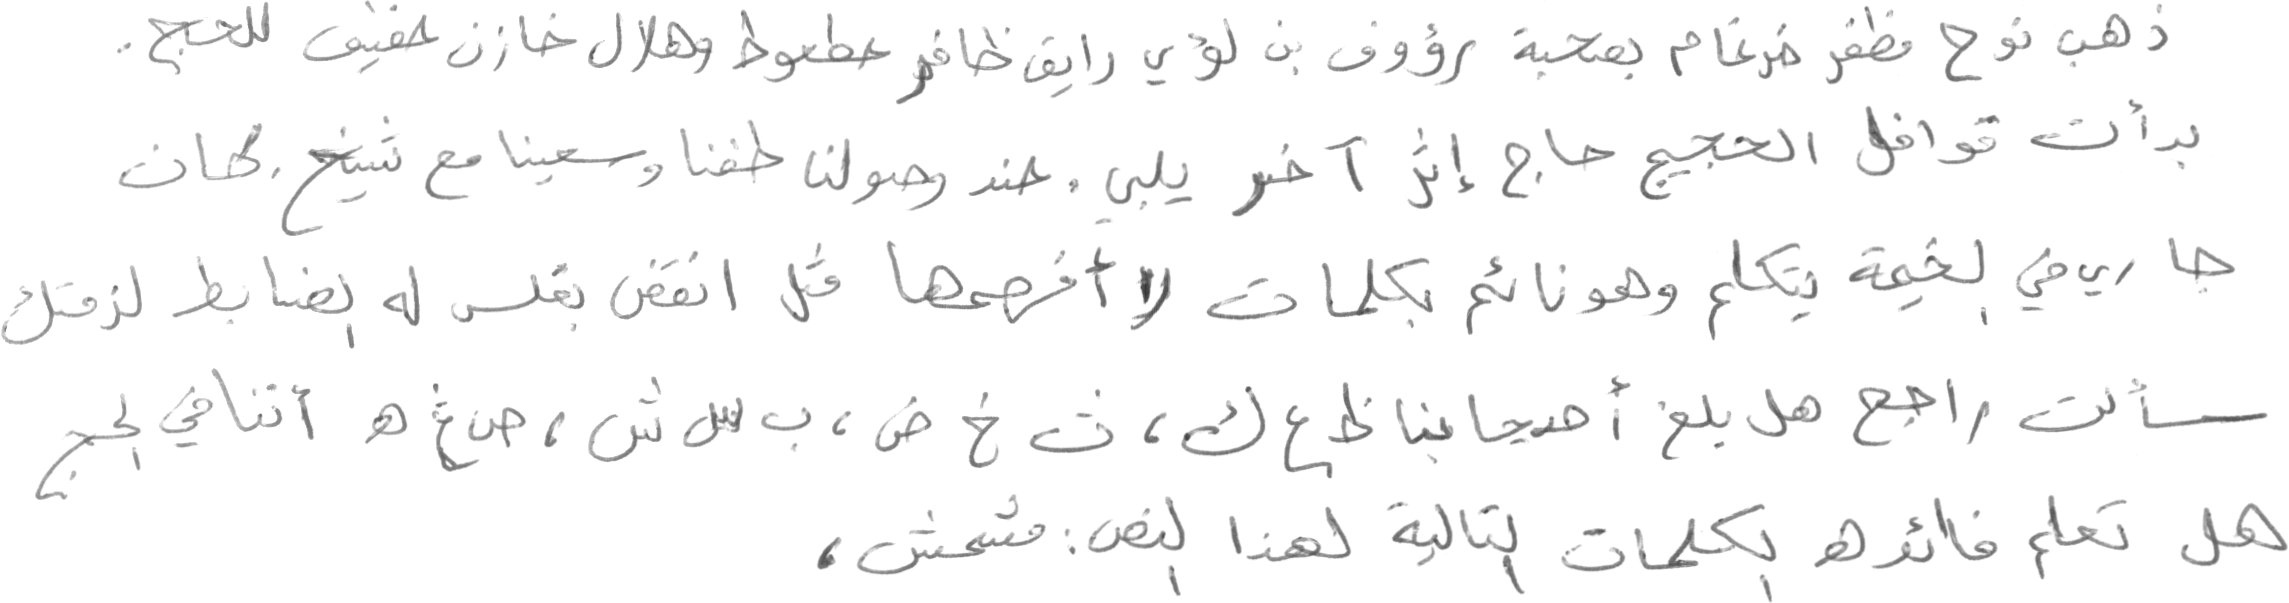 ذهب نوح مظفر ضرغام بصحبة رؤوف بن لؤي رايق ظافر عطعوط وهلال خازن عفيف للحج.
بدأت قوافل الحجيج حاج إثر آخر يلبي. عند وصولنا طفنا وسعينا مع شيخ. كان
جاري في الخيمة يتكلم وهو نائم بكلمات لا أفهمها مثل انقض بقلس له الضابط لزمتك
سألت راجع هل بلغ أحد حا بنا ظ ع ك، ث خ ض، ب س ش، ص غ ه أثنا في الحج
هل تعلم فائده الكلمات التالية لهذا النص: مشمش،